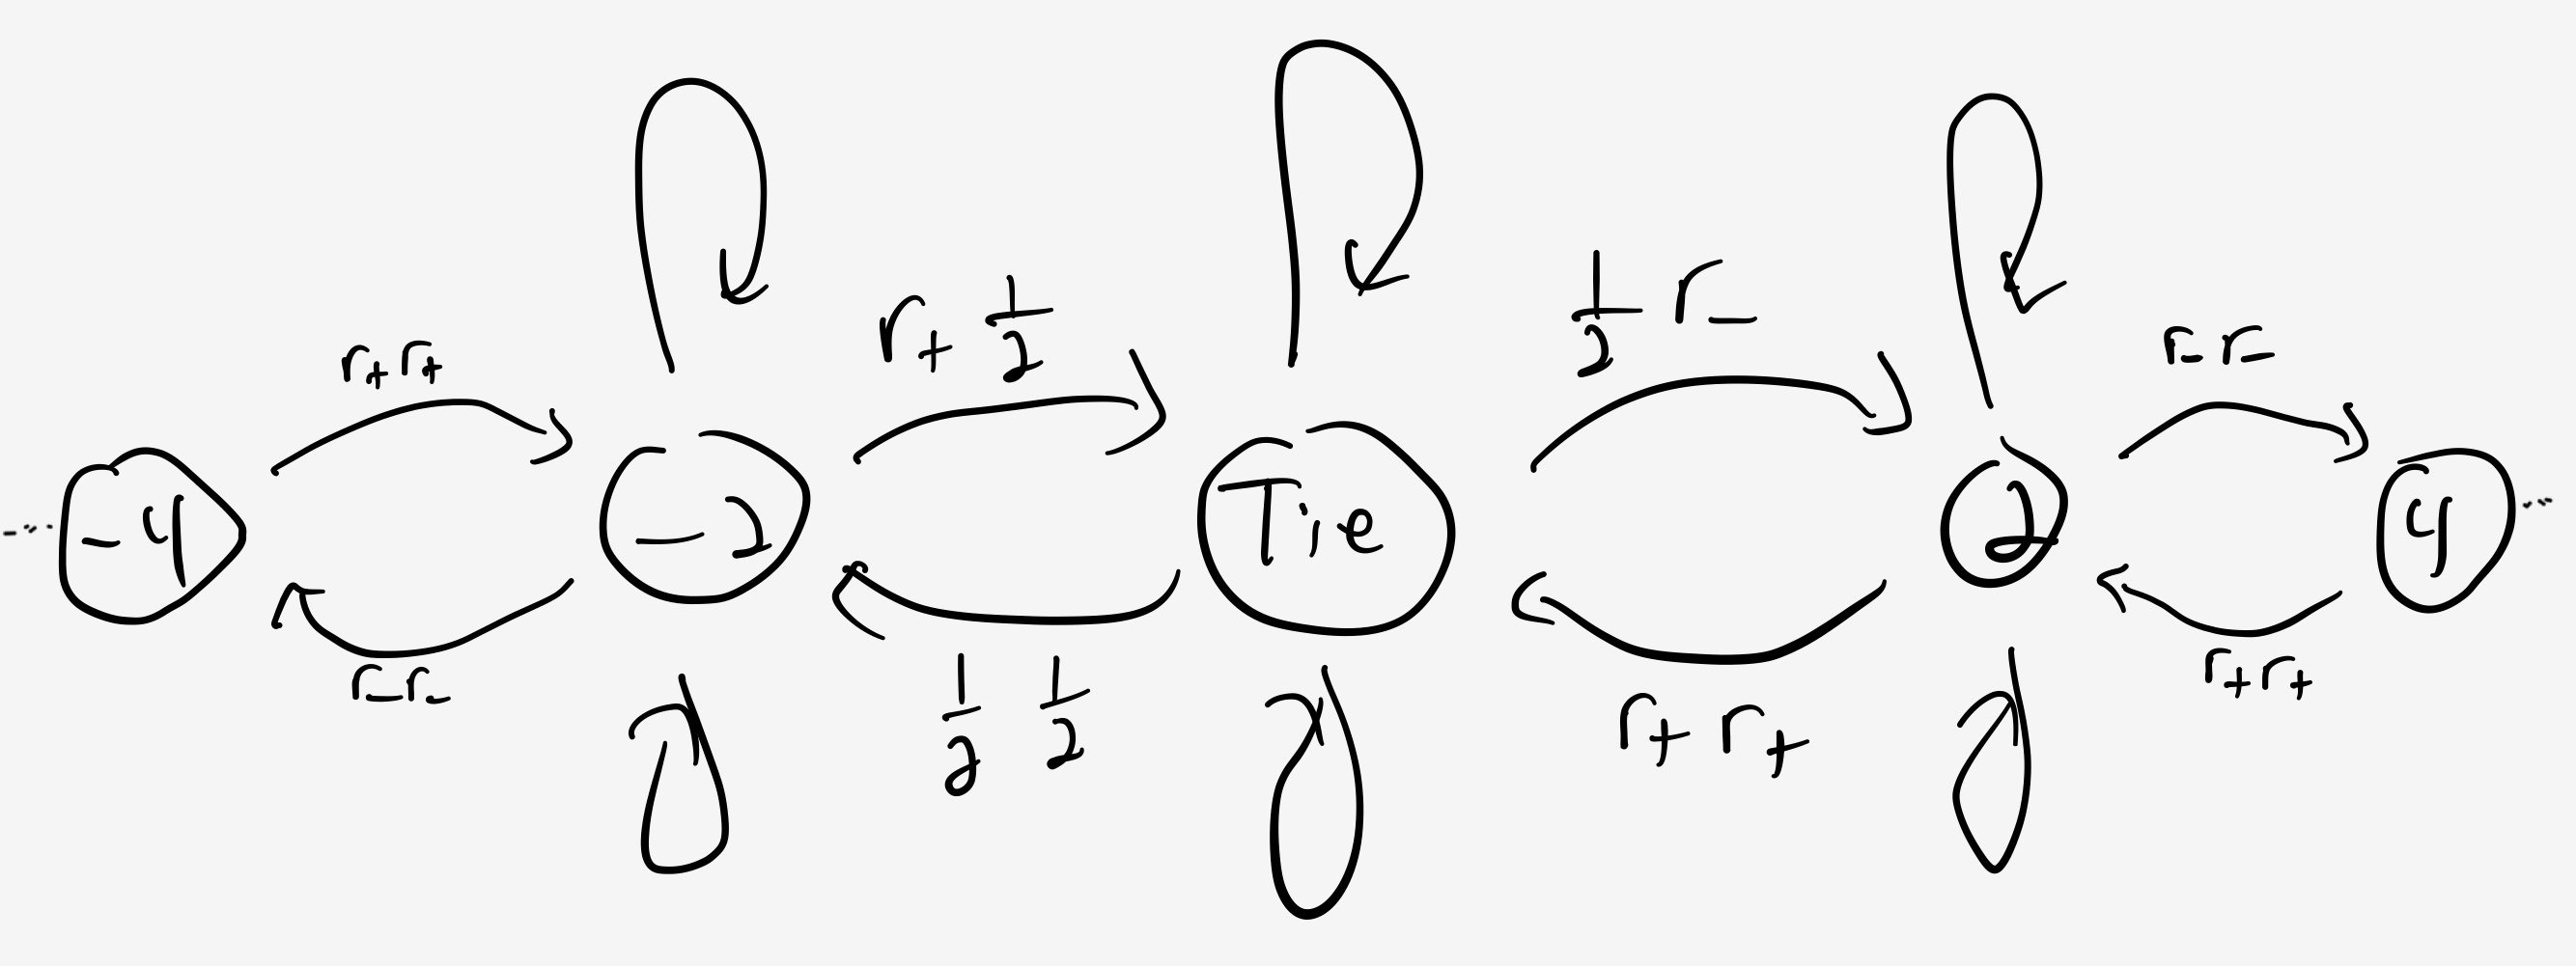 r₊ r₊
r₊ 1/2
1/2 r₋
r₋ r₋
-4
-2
Tie
2
4
r₋ r₋
1/2 1/2
r₊ r₊
r₊ r₊